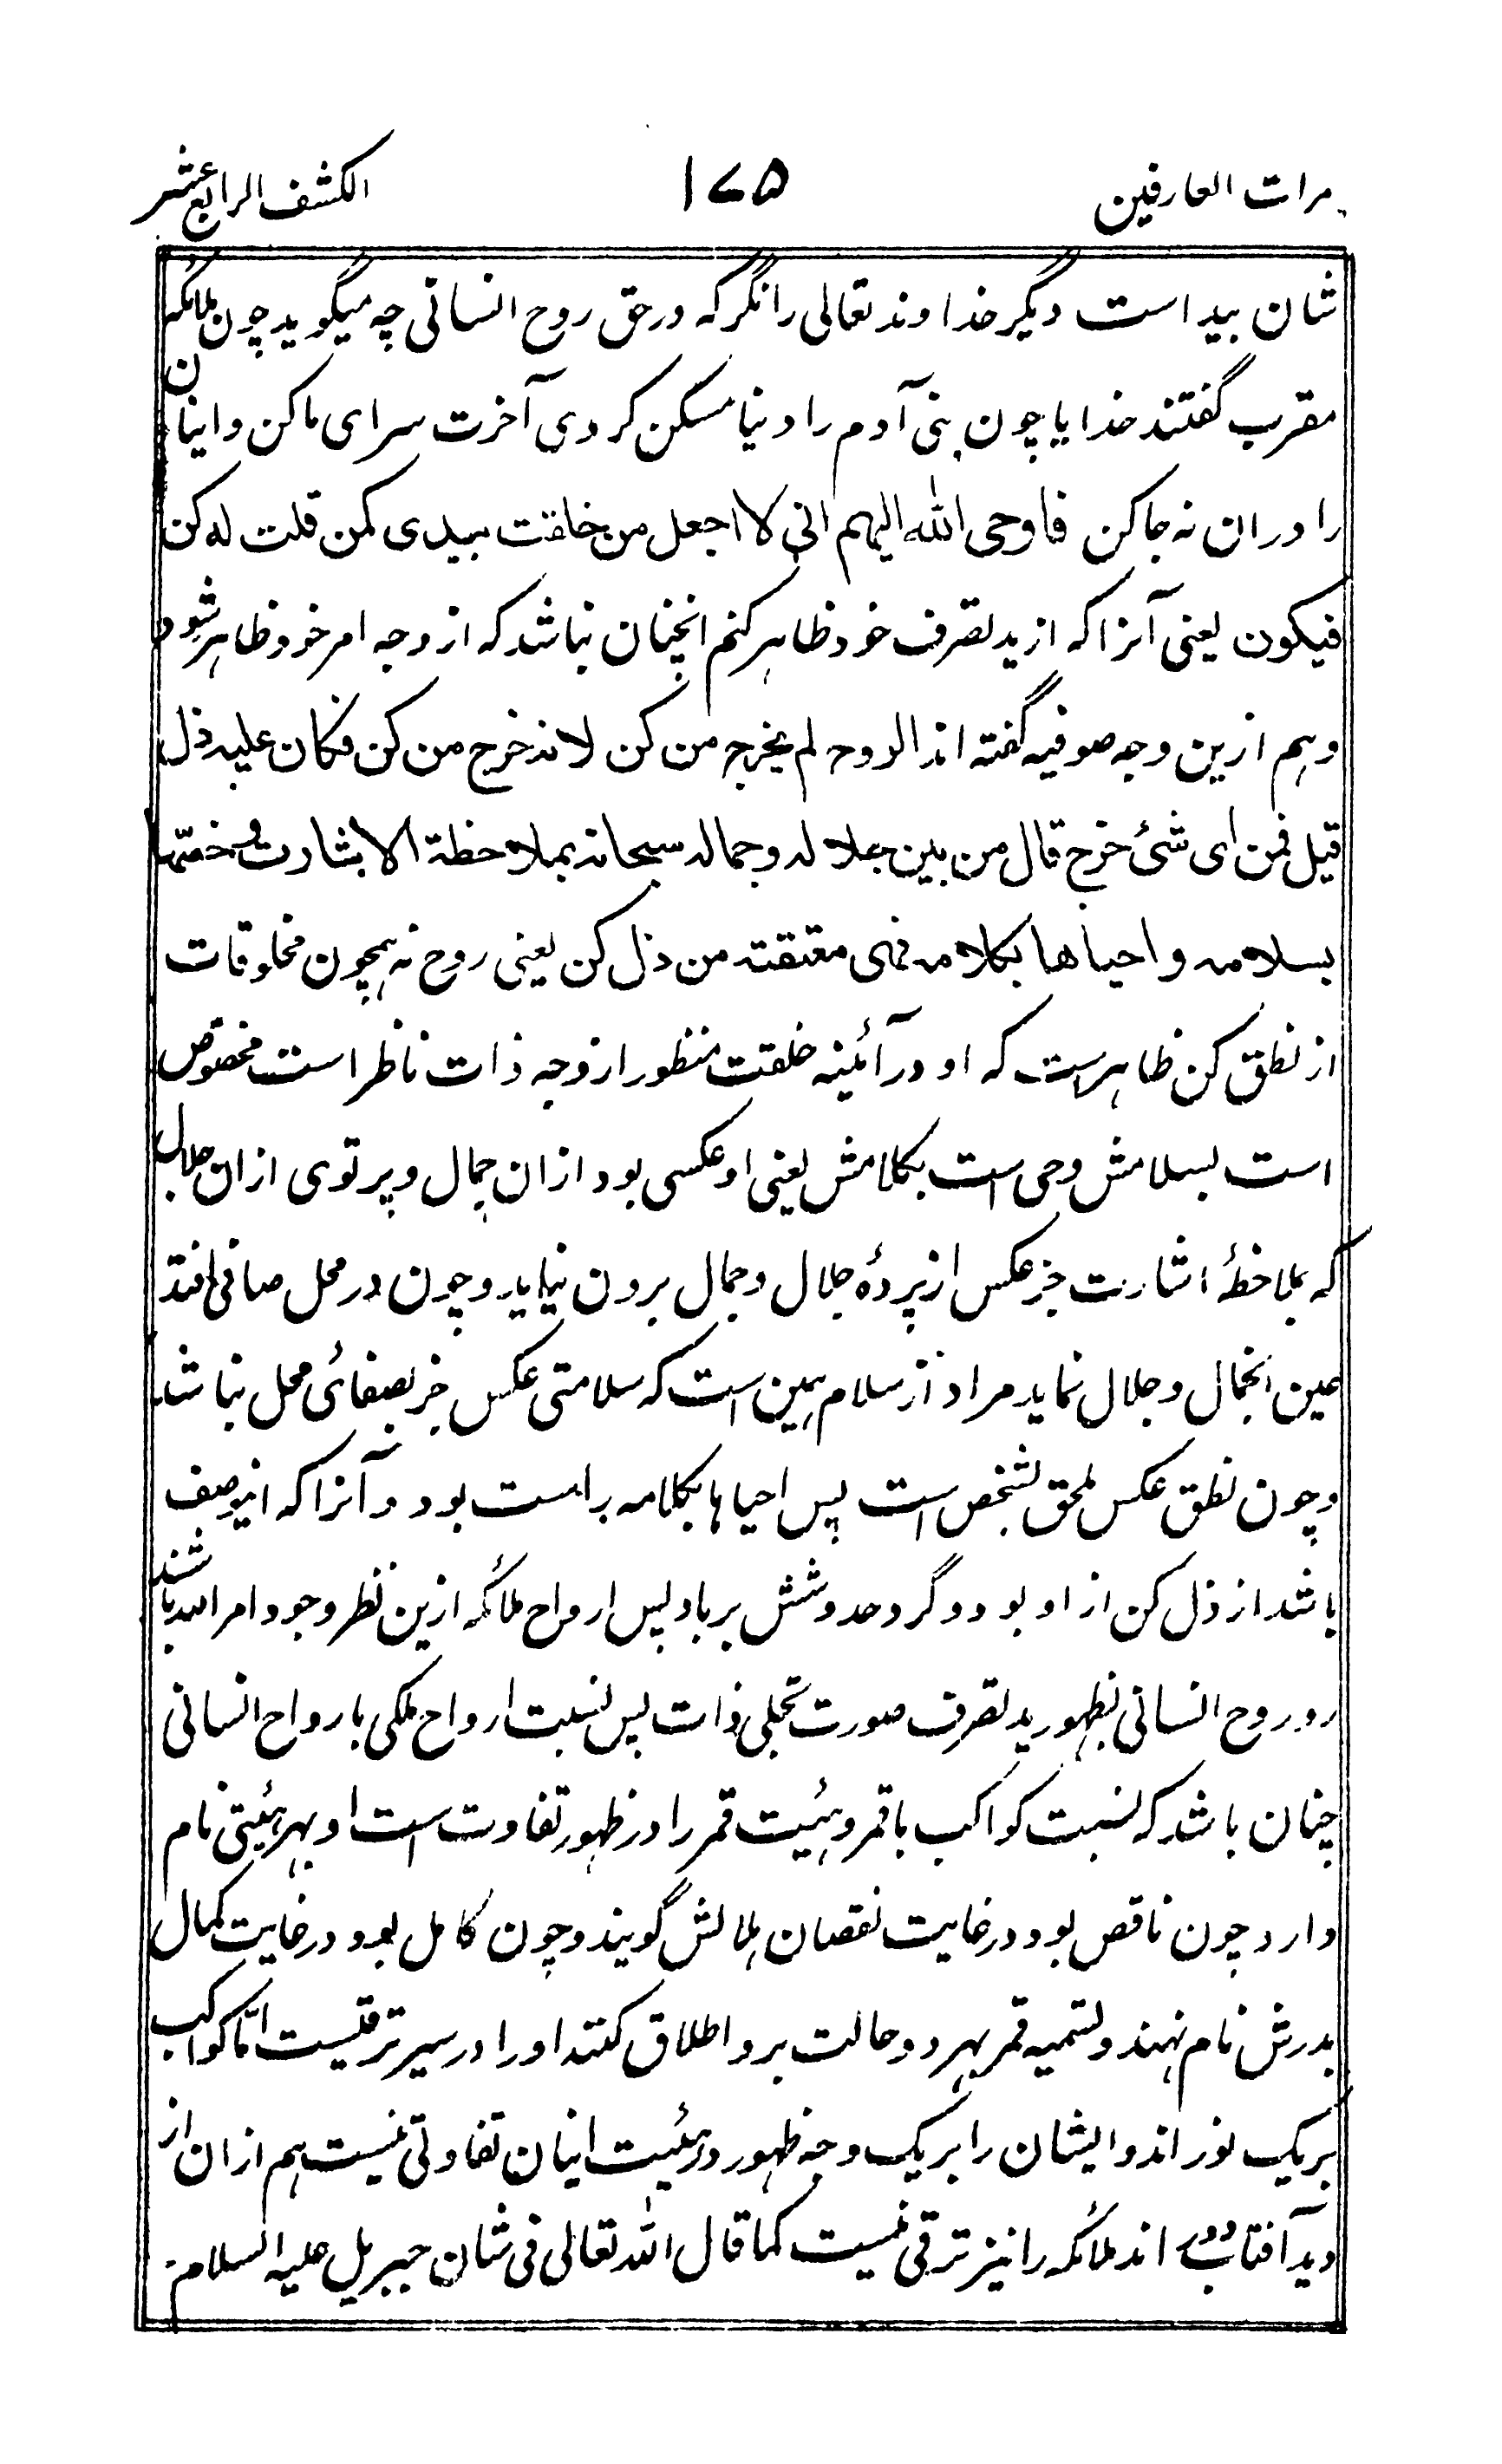 مرات العارفین ۱۷۵ الکشف الرابع عشر
شان بید است دیگر خداوند تعالی را نگر که در حق روح انسانی چه میگوید چون ملائکه
مقرب گفتند خدایا چون بنی آدم را دنیا مسکن کردی آخرت سرای ما کن و اینان
را دران نه جا کن فاوحی الله الیهم انی لا اجعل من خلقت بیدی کمن قلت له کن
فیکون یعنی آنرا که از ید تصرف خود ظاهر کنم انچنان نباشد که از وجه امر خود ظاهر شود
و هم ازین وجه صوفیه گفته اند الروح لم یخرج من کن لانه خرج من کن فکان علیه ذل
قیل فمن ای شئ خرج قال من بین جلاله و جماله سبحانه بملاحظة الاشارت و خصّها
بسلامه و احیاها بکلامه فهی معتقته من ذل کن یعنی روح نه همچون مخلوقات
از نطق کن ظاهرست که او در آئینه خلقت منظور از وجه ذات ناظر است مخصوص
است بسلامش وحی است بکلامش یعنی او عکسی بود ازان جمال و پرتوی ازان جلال
که بملاحظهٔ اشارت جز عکس از پردهٔ جلال و جمال برون نیاید و چون در محل صافی افتد
عین انجمال و جلال نماید مراد از سلام همین است که سلامتی عکس جز بصفائی محل نباشد
و چون نطق عکس ملحق بشخص است پس احیاها بکلامه راست بود و آنرا که اینوصف
باشد از ذل کن ازاو بود و گرد حدوثش بر باد پس ارواح ملائکه ازین نظر وجود امر الله باشند
و روح انسانی بظهور ید تصرف صورت تجلی ذات پس نسبت ارواح ملکی بارواح انسانی
چنان باشد که نسبت کواکب با قمر و هئیت قمر را در ظهور تفاوت است او بهر هئیتی نام
دارد چون ناقص بود در غایت نقصان هلالش گویند و چون کامل بود در غایت کمال
بدرش نام نهند و تسمیه قمر بهر دو حالت برو اطلاق کنند او را در سیر ترقیست امّا کواکب
بریک نور اند و ایشان را بریک وجه ظهور در هئیت اینان تفاوتی نیست هم ازان از
دید آفتاب دور اند ملائکه را نیز ترقی نیست کما قال الله تعالی فی شان جبریل علیه السلام